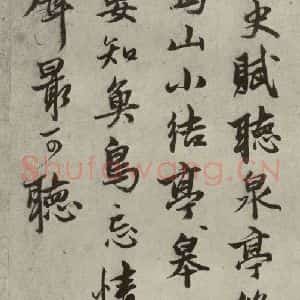 史賦聽泉亭
山小結亭皋
知魚鳥忘情
最可聽
Shufawang.CN